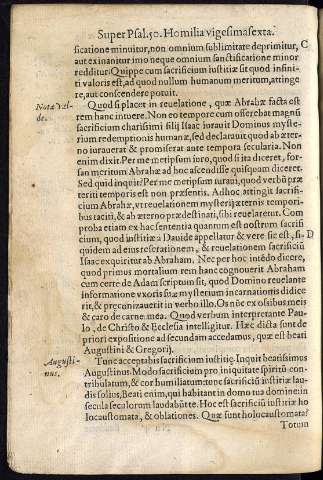 Super Psal. 50. Homilia vigesimasexta.
ficatione minuitur, non omnium sublimitate deprimitur, C
aut exinanitur imo neque omnium sanctificatione minor
redditur: Quippe cum sacrificium iustitiæ sit quod infini-
ti valoris est, ad quod nullum humanum meritum, attinge
re, aut conscendere potuit.
Notæ val-
de.
Quod si placet in reuelatione, quæ Abrahæ facta est
rem hanc intuere. Non eo tempore cum offerebat magnũ
sacrificium charissimi filij Isaac iurauit Dominus myste-
rium redemptionis humanæ, sed declarauit quod ab æter-
no iurauerat & promiserat ante tempora secularia. Non
enim dixit. Per me metipsum iuro, quod si ita diceret, for-
san meritum Abrahæ ad hoc ascendisse quispiam diceret.
Sed quid inquit? Per me metipsum iuraui, quod verbũ præ
teriti temporis est non præsentis. Adhoc attingit sacrifi-
cium Abrahæ, vt reuelationem mysterij æternis tempori-
bus taciti, & ab æterno prædestinati, sibi reuelaretur. Com
proba etiam ex hac sententia quantum est nostrum sacrifi
cium, quod iustitiæ a Dauide appellatur & vere sic est, si- D
quidem ad eius reserationem, & reuelationem sacrificiũ
Isaac exquiritur ab Abraham. Nec per hoc intẽdo dicere,
quod primus mortalium rem hanc cognouerit Abraham
cum certe de Adam scriptum sit, quod Domino reuelante
informatione vxoris suæ mysterium incarnationis didice
rit, & preconizauerit in verbo illo. Os nũc ex osibus meis
& caro de carne mea. Quod verbum interpretante Pau-
lo, de Christo & Ecclesia intelligitur. Hæc dicta sunt de
priori expositione ad secundam accedamus, quæ est beati
Augustini & Gregorij.
Augusti-
nus.
Tunc acceptabis sacrificium iustitię. Inquit beatissimus
Augustinus. Modo sacrificium pro iniquitate spiritũ con-
tribulatum, & cor humiliatum: tunc sacrificiũ iustitiæ lau-
dis solius, Beati enim, qui habitant in domo tua domine: in
secula seculorum laudabũt te. Hoc est sacrificiũ iustitiæ ho
locaustomata, & oblationes. Quæ sunt holocaustomata?
Totum